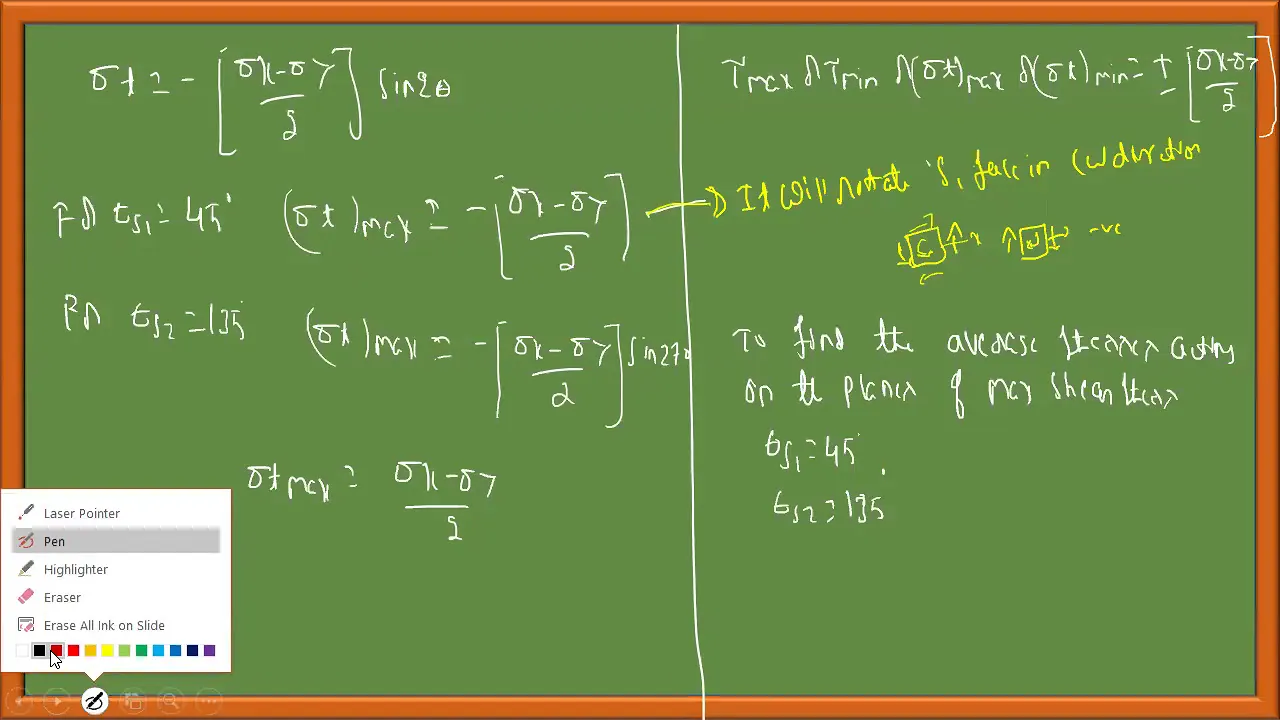 σt = - [σx - σy / 2] sin2θ
θs1 = 45° (σt)max = - [σx - σy / 2]
θs2 = 135° (σt)max = - [σx - σy / 2] sin270
σt max = σx - σy / 2
τmax τmin (σt)max (σt)min = ± [σx - σy / 2]
It will rotate face in direction
-ve
To find the average stresses acting
on the planes of max shear stress
θs1 = 45°
θs2 = 135°
Laser Pointer
Pen
Highlighter
Eraser
Erase All Ink on Slide